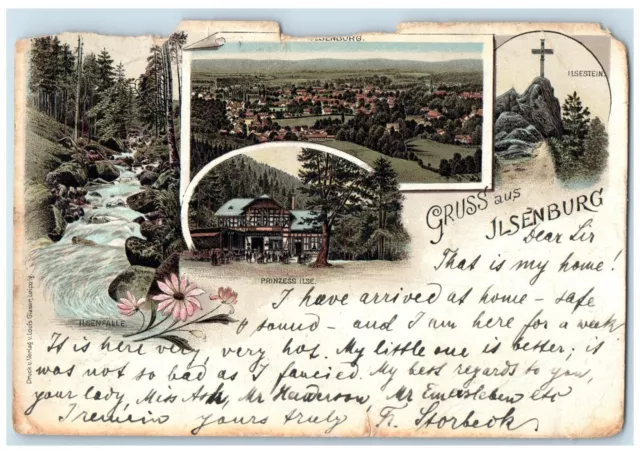 ILSENBURG.
ILSESTEIN.
PRINZESS ILSE.
ILSENFÄLLE.
GRUSS aus
ILSENBURG
Druck u. Verlag v. Louis Glaser, Leipzig.
Dear Sir
That is my home!
I have arrived at home – safe
& sound – and I am here for a week
It is here very, very hot. My little one is better; is
was not so bad as I fancied. My best regards to you,
your lady, Miss Ash, Mr Henderson, Mr Emersleben etc
I remain yours truly Fr. Storbeck